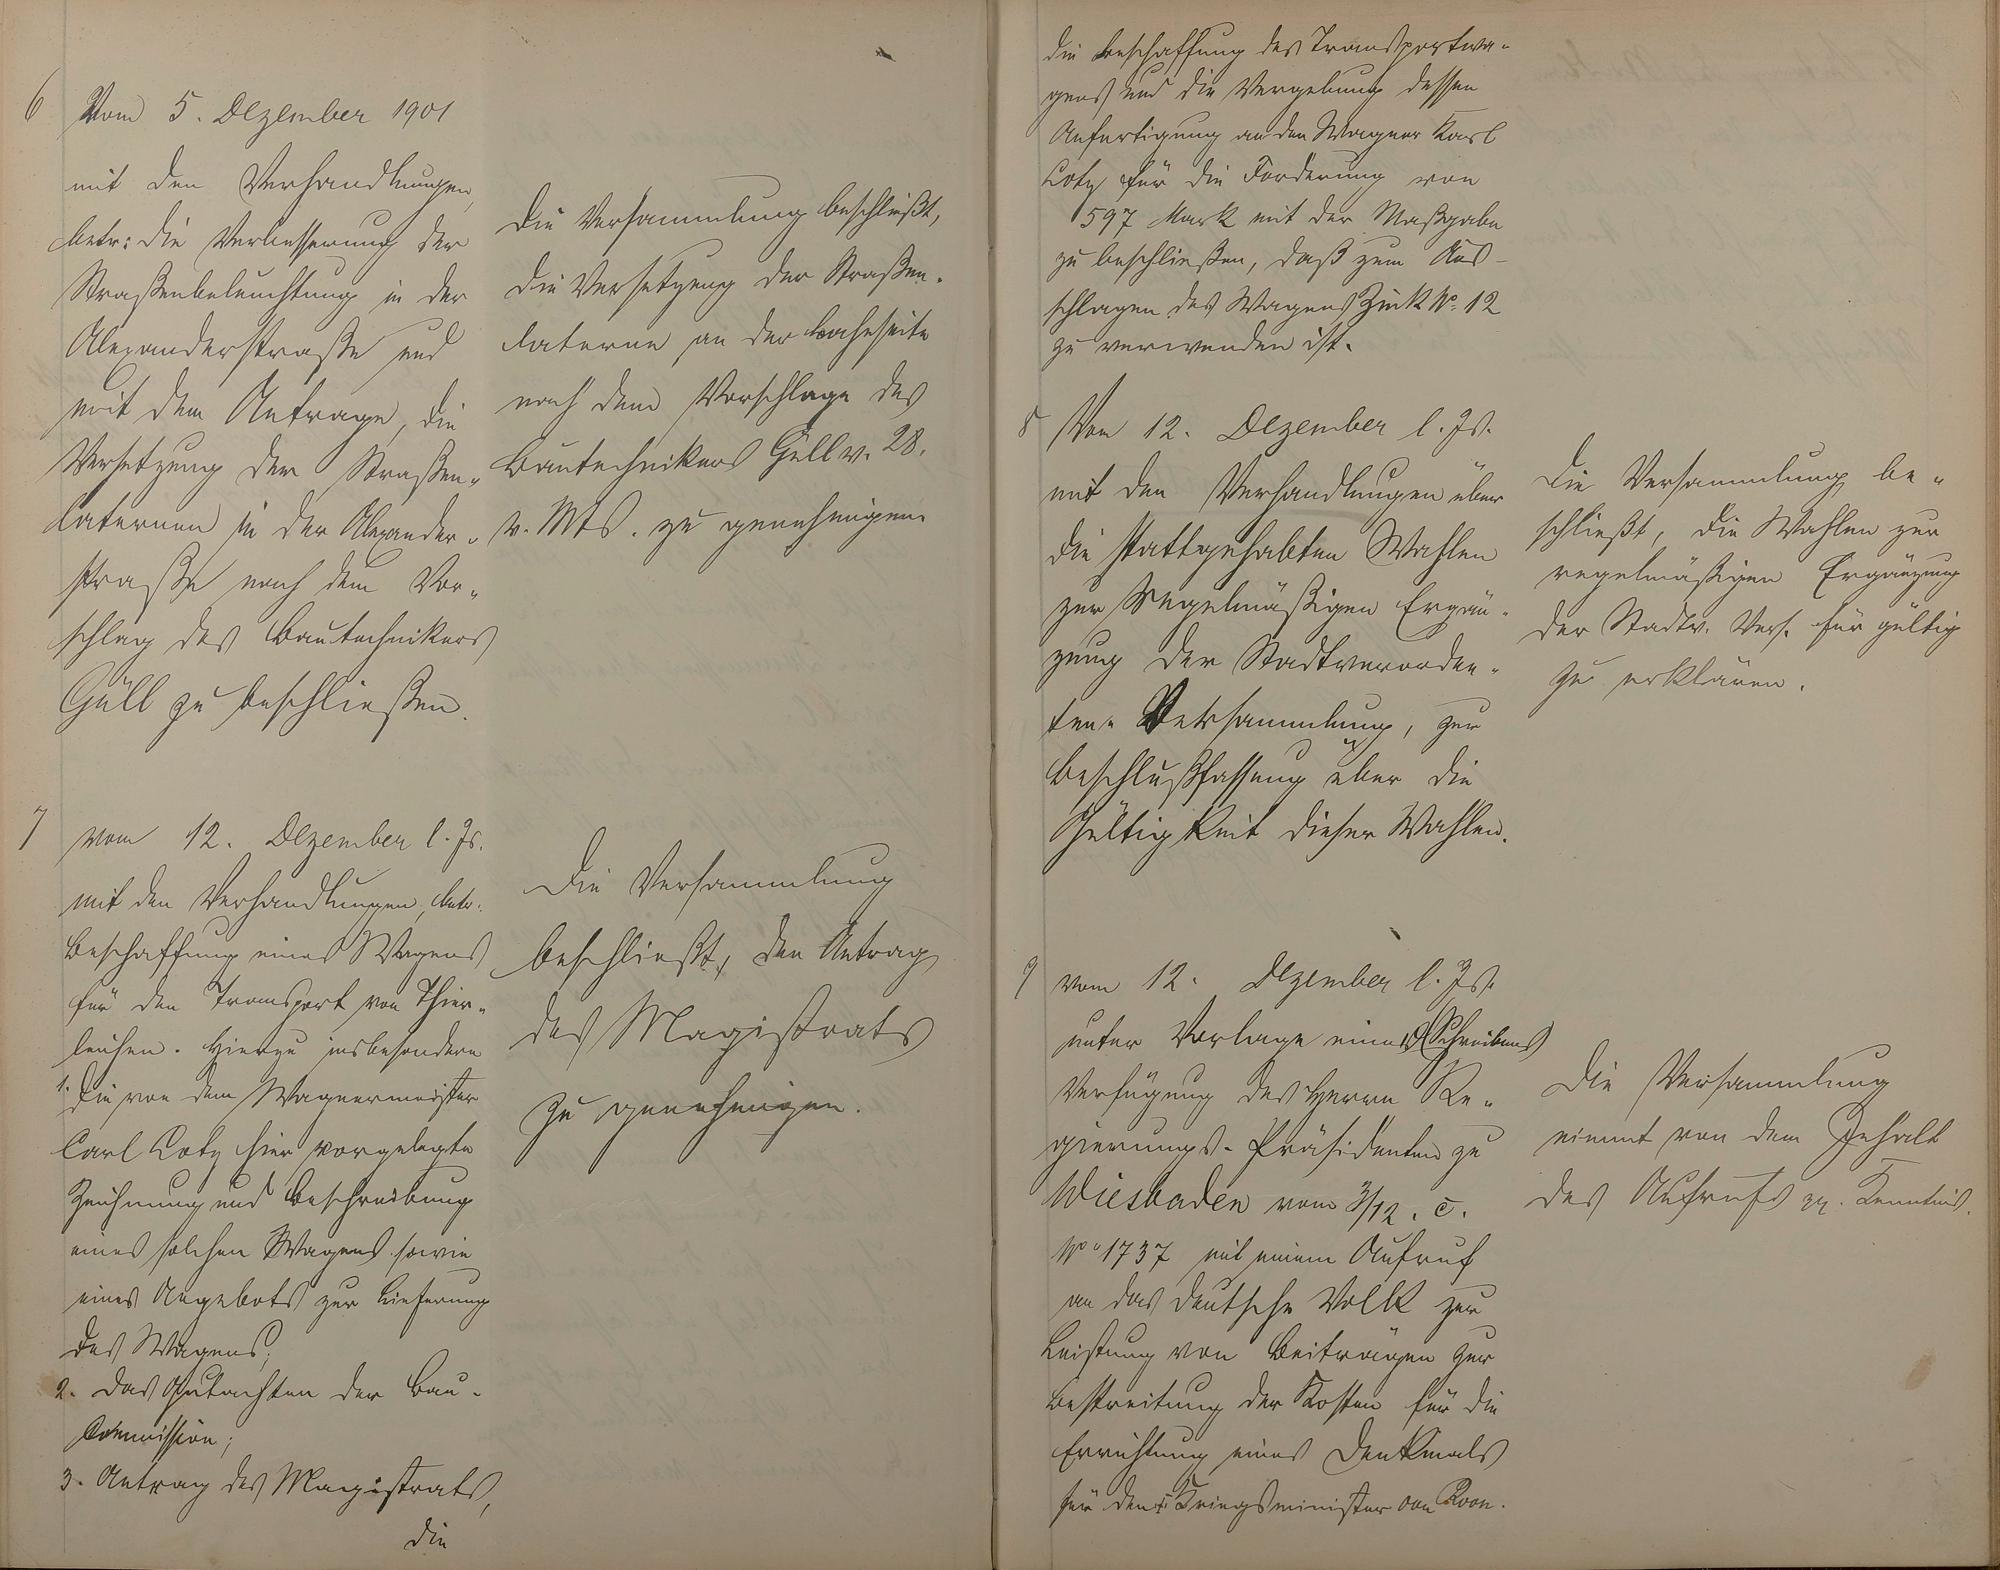 6 Vom 5. Dezember 1901
mit den Verhandlungen,
betr: die Verbesserung der
Straßenbeleuchtung in der
Alexanderstraße und
mit dem Antrage, die
Versetzung der Straßen-
laternen in der Alexander-
straße nach dem Vor-
schlag des Bautechnikers
Güll zu beschließen.
Die Versammlung beschließt,
die Versetzung der Straßen-
laterne an der
nach dem Vorschlage des
Bautechnikers Güll v. 28.
v. Mts. zu genehmigen.
7 vom 12. Dezember l. Js.
mit den Verhandlungen, betr.
Beschaffung eines Wagens
für den Transport von Thier-
leichen. Hierzu insbesondere
1. die von dem Wagnermeister
Carl Lotz hier vorgelegte
Zeichnung und Beschreibung
eines solchen Wagens sowie
eines Angebots zur Lieferung
des Wagens;
2. das Gutachten der Bau-
Commission;
3. Antrag des Magistrats,
die
Die Versammlung
beschließt, den Antrag
des Magistrats
zu genehmigen.
die Beschaffung des Transportwa-
gens und die Vergebung dessen
Anfertigung an den Wagner Karl
Lotz für die Forderung von
597 Mark mit der Maßgabe
zu beschließen, daß zum Aus-
schlagen des Wagens Zink No. 12
zu verwenden ist.
8 Vom 12. Dezember l. Js.
mit den Verhandlungen über
die stattgehabten Wahlen
zur regelmäßigen Ergän-
zung der Stadtverordne-
ten-Versammlung, zur
Beschlußfassung über die
Gültigkeit dieser Wahlen.
Die Versammlung be-
schließt, die Wahlen zur
regelmäßigen Ergänzung
der Stadtv. Vers. für gültig
zu erklären.
9 vom 12. Dezember l. Js.
unter Vorlage eines Schreibens
Verfügung des Herrn Re-
gierungs-Präsidenten zu
Wiesbaden vom 3/12. c.
No 1737 mit einem Aufruf
an das deutsche Volk zur
Leistung von Beiträgen zur
Bestreitung der Kosten für die
Errichtung eines Denkmals
für den Kriegsminister von Roon.
Die Versammlung
nimmt von dem Inhalt
des Aufrufs Kenntnis.